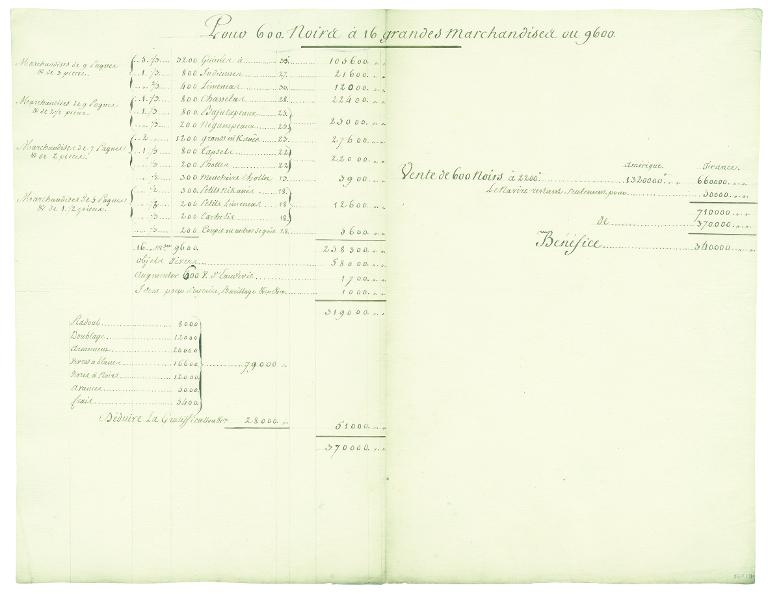 Pour 600 Noirs à 16 grandes Marchandises ou 9600.
Marchandises de 9 Pagnes
de 3 pieces.
3. /3 3200 Guinées à 33 105600
1. /3 800 Indiennes 27. 21600
/3 400 Limeneas 30. 12000
Marchandises de 9 Pagnes
de 2 1/2 piece.
1. /3 800 Chasselas 28. 22400
1. /3 800 Bajutapeaux 23
/3 200 Néganepeaux 23
23000
Marchandises de 7 Pagnes
de 2 pieces.
2 1200 23. 27600
1. /3 800 Capsels 22
/3 200 Photter 22
22000
/2 300 Mouchoirs Cholet 13. 3900
Marchandises de 5 Pagnes
de 1. 1/2 pieces.
/2 300 Petits Nikanéas 18.
/3 200 Petits Limeneas 18
/3 200
12600
/3 200 Coupis ou autres 18. 3600
16. 9600. 258300
Objets Divers 58000
Augmenter 600 P. d'Eaudevie 1700
Idem pour Barillage 1000
319000
Radoub 8000
Doublage 12000
Armement 20000
Vivres à blancs 16600
Vivres à Noirs 12000
Avances 5000
frais 5400
79000
Déduire La Gratiffication 28000
51000
370000
Amérique. France.
Vente de 600 Noirs à 2200 1320000 660000
Le Navire venant seulement pour 50000
710000
De 370000
Bénéfice 340000